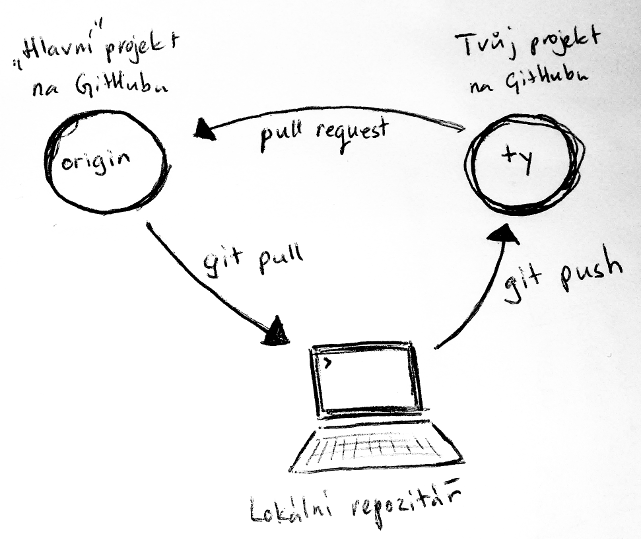 „Hlavní" projekt
na GitHubu
Tvůj projekt
na GitHubu
origin
pull request
ty
git pull
git push
>
Lokální repozitář